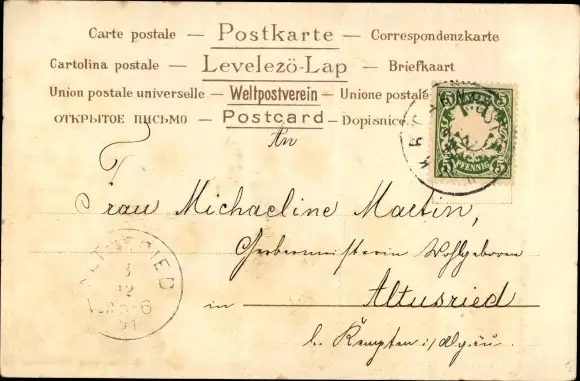 Carte postale — Postkarte — Correspondenzkarte
Cartolina postale — Levelező-Lap — Briefkaart
Union postale universelle — Weltpostverein — Unione postale
ОТКРЫТОЕ ПИСЬМО — Postcard — Dopisnice
An
Frau Michaeline Martin,
Gerbermeisterin Wohlgeboren
in Altusried
b. Kempten i/Allgäu.
5 5
PFENNIG
ALTUSRIED
3
12